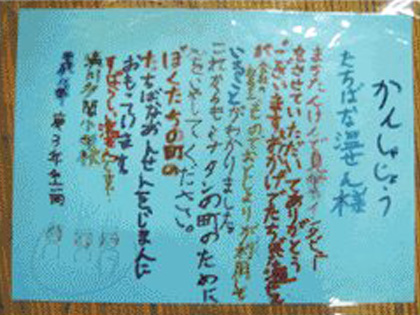 かんしゃじょう
たちばな温せん様
まちたんけんで見学やインタビュー
をさせていただいてありがとう
ございます。おかげでたちばな温せん
が
ものでおとしよりが利用して
いることがわかりました。
これからもミナタンの町のために
してください。
ぼくたちの町の
たちばなおんせんをじまんに
おもっています
すばらしい温せんを
湊川多聞小学校
第3年生一同